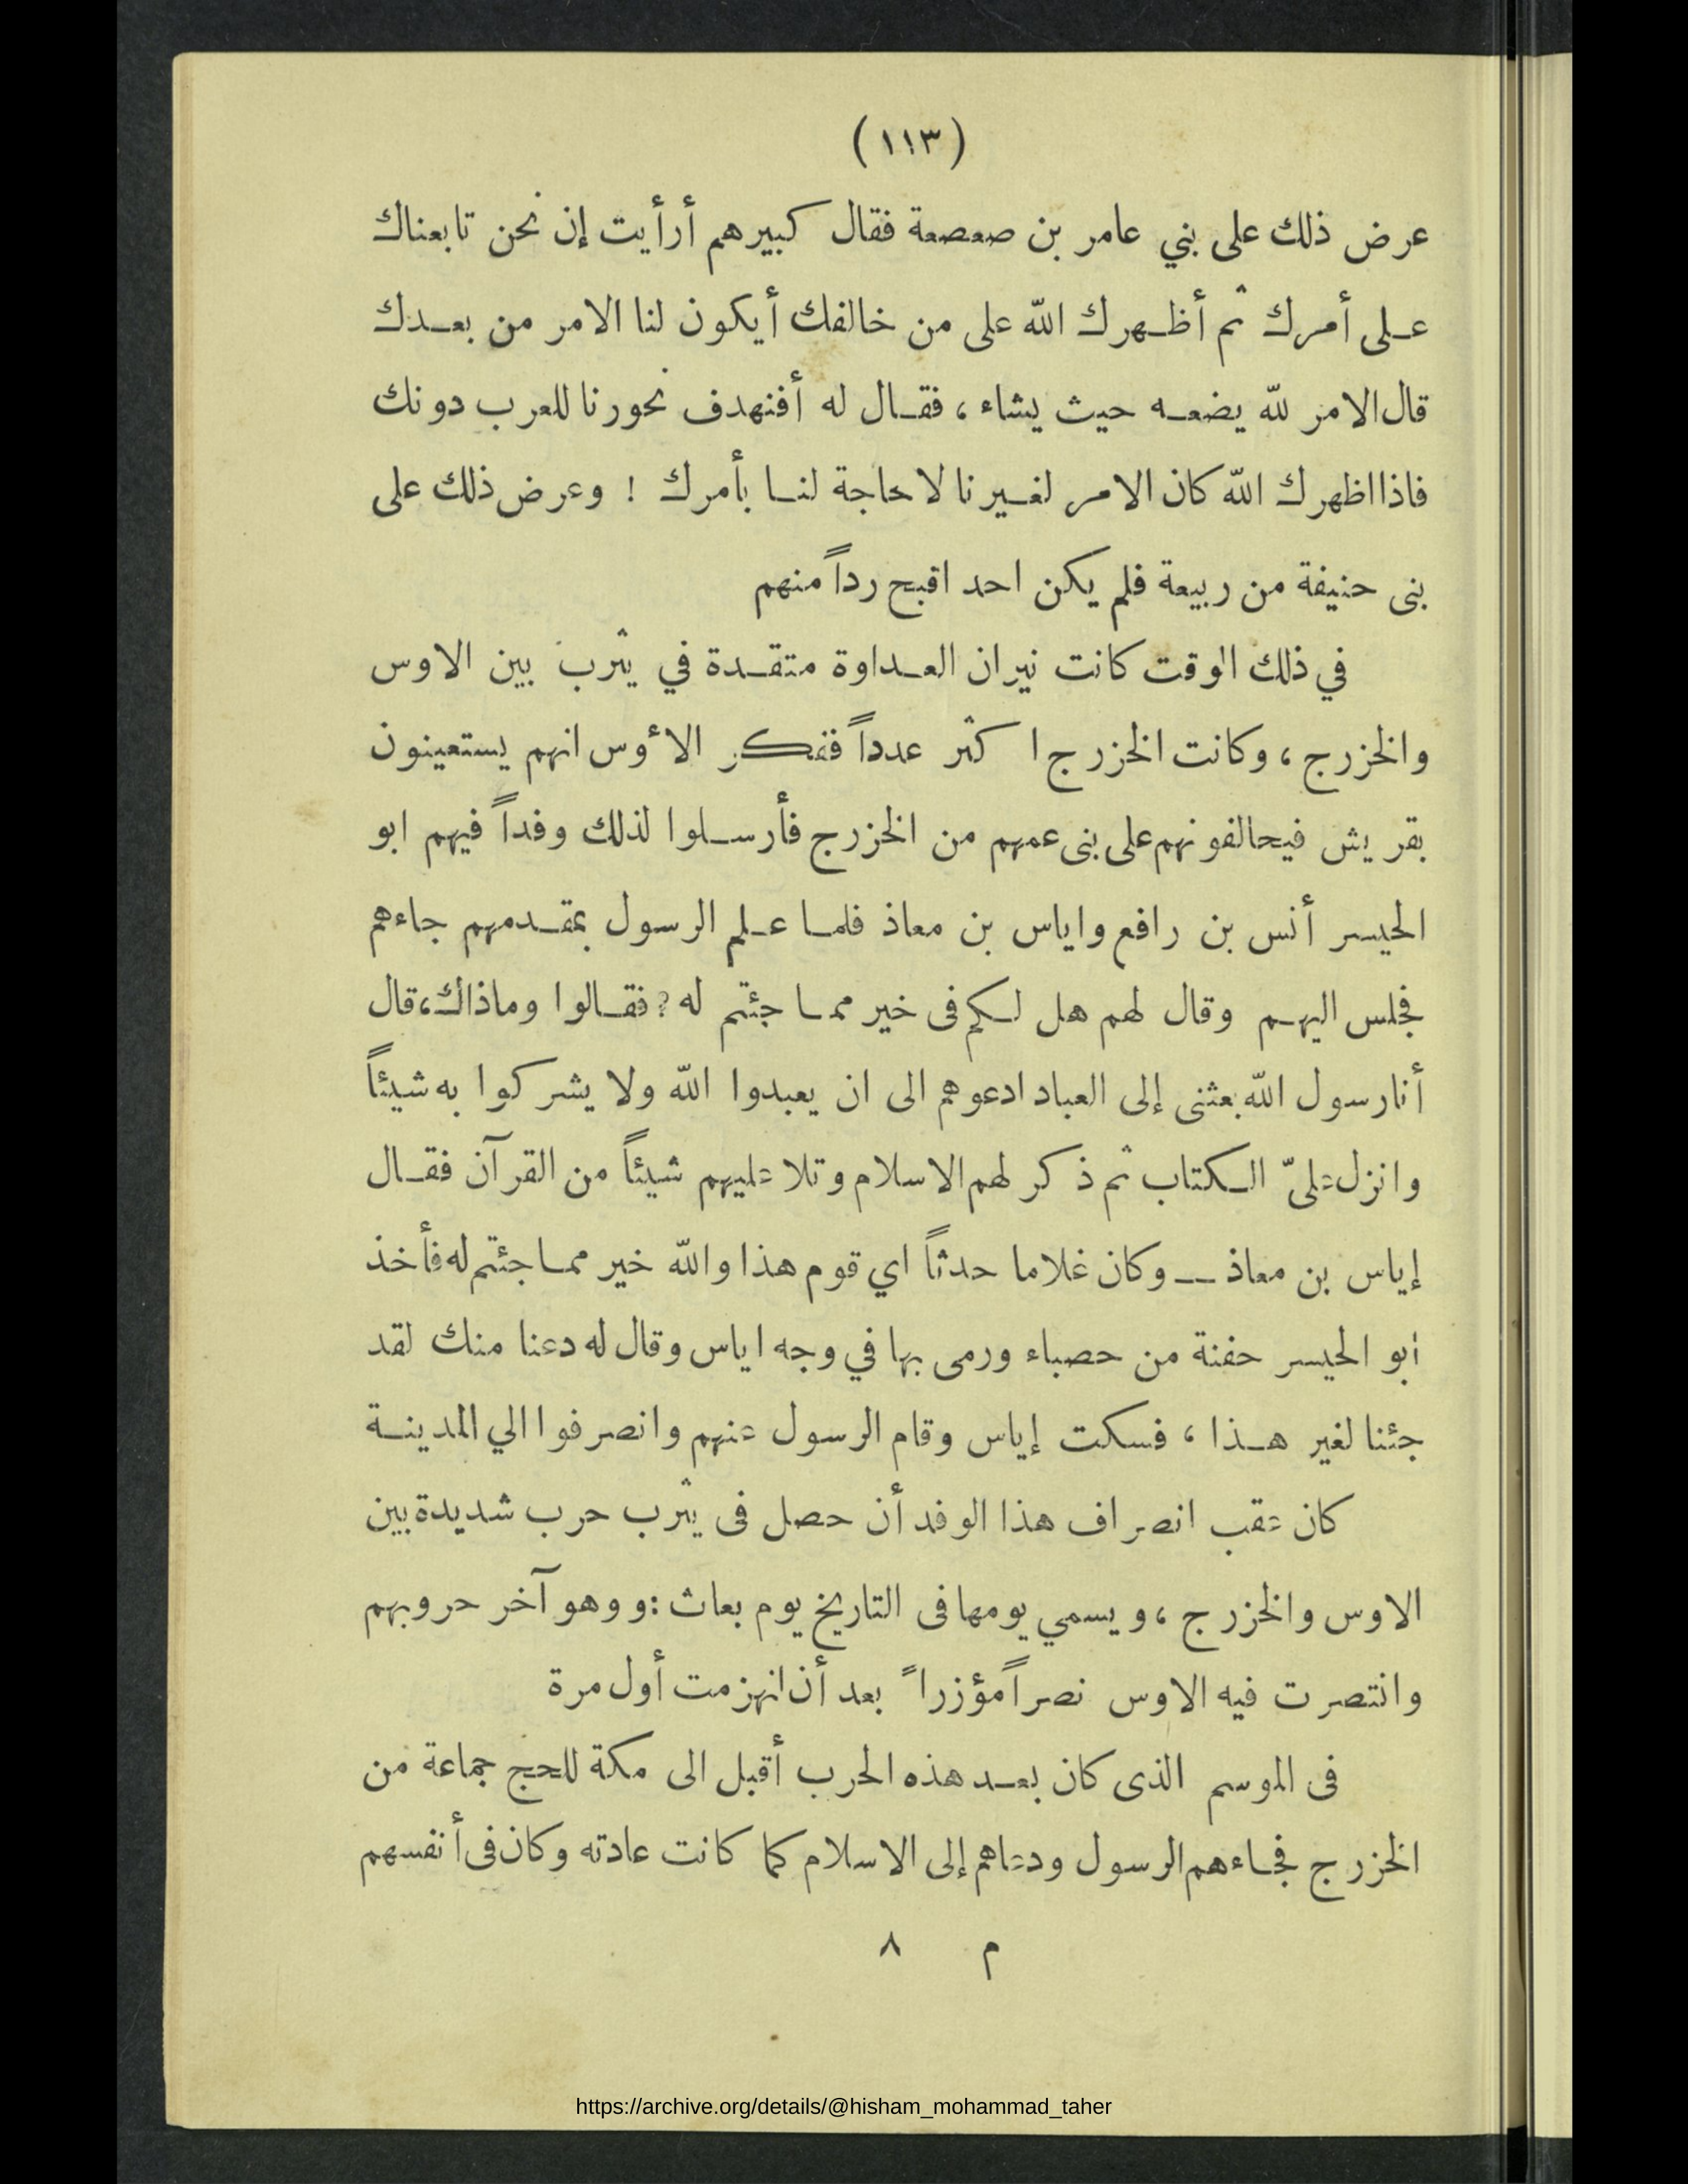 (١١٣)
عرض ذلك على بني عامر بن صعصعة فقال كبيرهم أرأيت إن نحن تابعناك
على أمرك ثم أظهرك الله على من خالفك أيكون لنا الامر من بعدك
قال الامر لله يضعه حيث يشاء ، فقال له أفنهدف نحورنا للعرب دونك
فاذا اظهرك الله كان الامر لغيرنا لا حاجة لنا بأمرك ! وعرض ذلك على
بنى حنيفة من ربيعة فلم يكن احد اقبح رداً منهم
في ذلك الوقت كانت نيران العداوة متقدة في يثرب بين الاوس
والخزرج ، وكانت الخزرج ا كثر عدداً ففكر الأوس انهم يستعينون
بقريش فيحالفونهم على بنى عمهم من الخزرج فأرسلوا لذلك وفداً فيهم ابو
الحيسر أنس بن رافع واياس بن معاذ فلما علم الرسول بمقدمهم جاءهم
فجلس اليهم وقال لهم هل لكم فى خير مما جئتم له ? فقالوا وماذاك، قال
أنا رسول الله بعثنى إلى العباد ادعوهم الى ان يعبدوا الله ولا يشركوا به شيئاً
وانزل علىّ الكتاب ثم ذكر لهم الاسلام وتلا عليهم شيئاً من القرآن فقال
إياس بن معاذ — وكان غلاما حدثاً اي قوم هذا والله خير مما جئتم له فأخذ
أبو الحيسر حفنة من حصباء ورمى بها في وجه اياس وقال له دعنا منك لقد
جئنا لغير هذا ، فسكت إياس وقام الرسول عنهم وانصرفوا الي المدينة
كان عقب انصراف هذا الوفد أن حصل فى يثرب حرب شديدة بين
الاوس والخزرج ، ويسمي يومها فى التاريخ يوم بعاث : و وهو آخر حروبهم
وانتصرت فيه الاوس نصراً مؤزراً بعد أن انهزمت أول مرة
فى الموسم الذى كان بعد هذه الحرب أقبل الى مكة للحج جماعة من
الخزرج فجاءهم الرسول ودعاهم إلى الاسلام كما كانت عادته وكان فى أنفسهم
م ٨
https://archive.org/details/@hisham_mohammad_taher